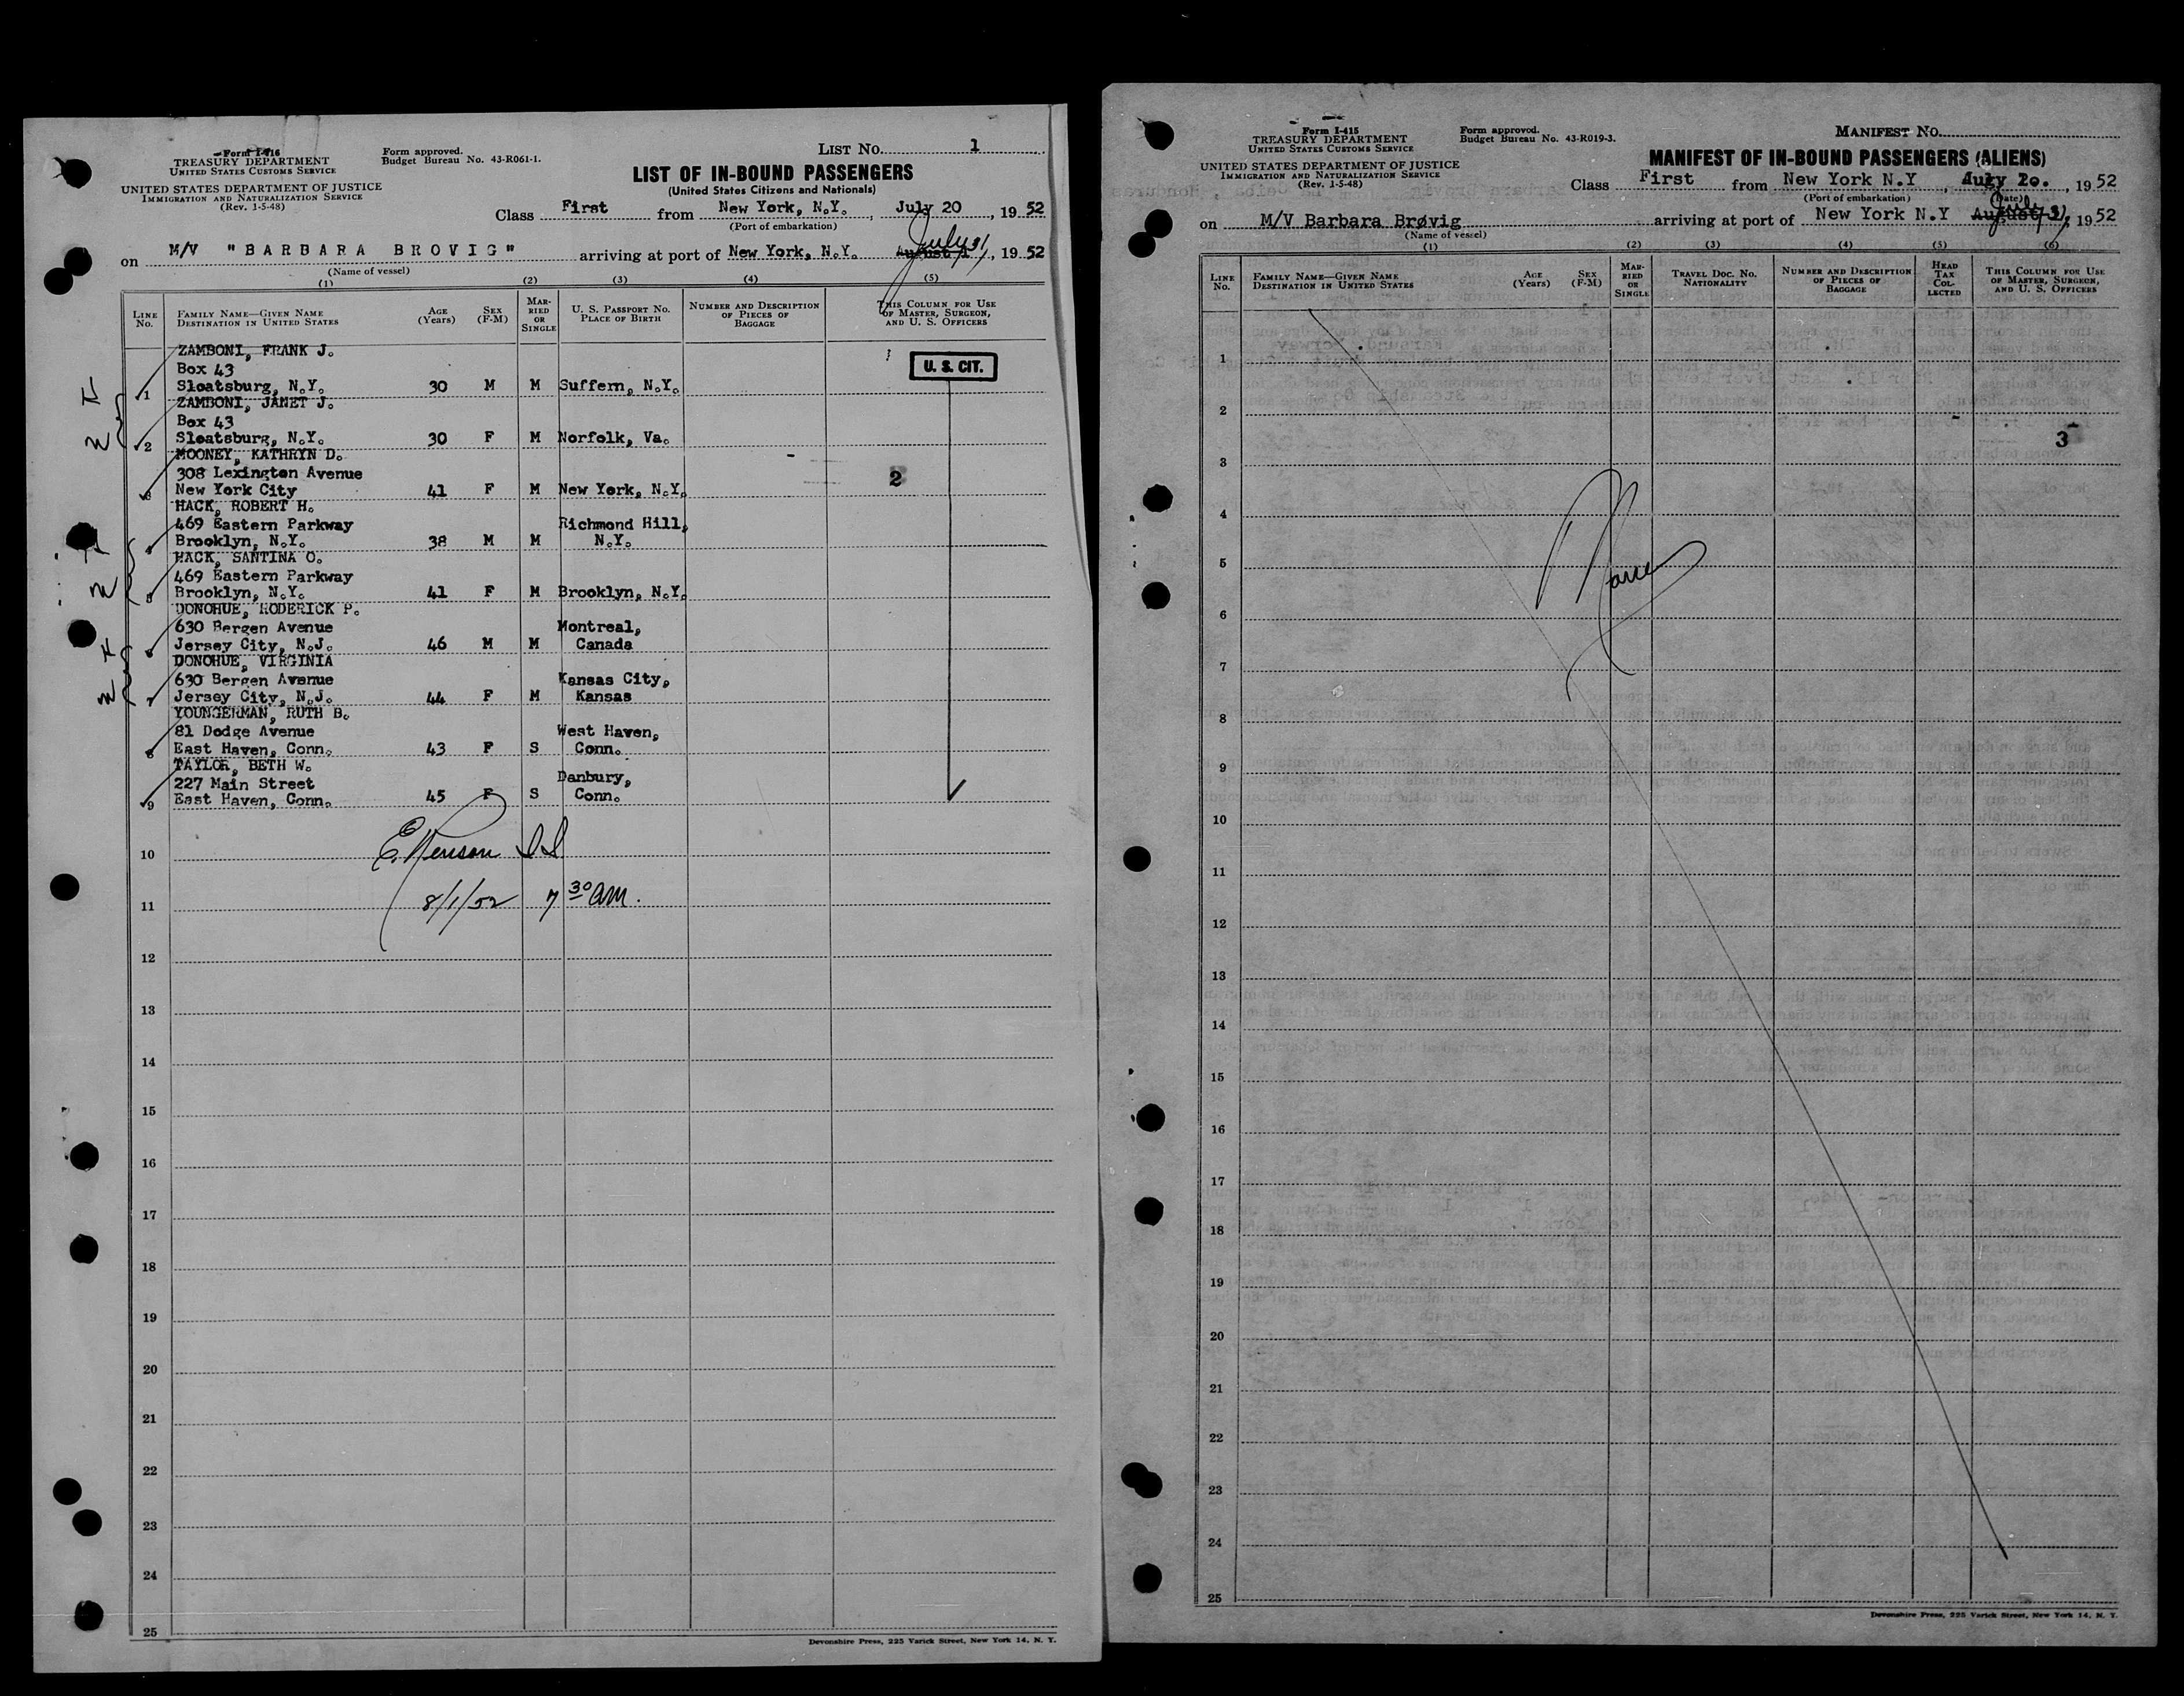 Form I-416
TREASURY DEPARTMENT
UNITED STATES CUSTOMS SERVICE
UNITED STATES DEPARTMENT OF JUSTICE
IMMIGRATION AND NATURALIZATION SERVICE
(Rev. 1-5-48)
Form approved.
Budget Bureau No. 43-R061-1.
LIST No. 1
LIST OF IN-BOUND PASSENGERS
(United States Citizens and Nationals)
Class First from New York, N.Y., July 20, 1952
(Port of embarkation)
on M/V "BARBARA BROVIG" arriving at port of New York, N.Y. August 1 July 31, 1952
(Name of vessel)
(1) (2) (3) (4) (5)
LINE No. FAMILY NAME—GIVEN NAME DESTINATION IN UNITED STATES AGE (Years) SEX (F-M) MARRIED OR SINGLE U. S. PASSPORT No. PLACE OF BIRTH NUMBER AND DESCRIPTION OF PIECES OF BAGGAGE THIS COLUMN FOR USE OF MASTER, SURGEON, AND U. S. OFFICERS
ZAMBONI, FRANK J.
Box 43
1 Sloatsburg, N.Y. 30 M M Suffern, N.Y.
U. S. CIT.
ZAMBONI, JANET J.
Box 43
2 Sloatsburg, N.Y. 30 F M Norfolk, Va.
MOONEY, KATHRYN D.
308 Lexington Avenue
3 New York City 41 F M New York, N.Y.
2
HACK, ROBERT H.
469 Eastern Parkway Richmond Hill,
4 Brooklyn, N.Y. 38 M M N.Y.
HACK, SANTINA O.
469 Eastern Parkway
5 Brooklyn, N.Y. 41 F M Brooklyn, N.Y.
DONOHUE, RODERICK P.
630 Bergen Avenue Montreal,
6 Jersey City, N.J. 46 M M Canada
DONOHUE, VIRGINIA
630 Bergen Avenue Kansas City,
7 Jersey City, N.J. 44 F M Kansas
YOUNGERMAN, RUTH B.
81 Dodge Avenue West Haven,
8 East Haven, Conn. 43 F S Conn.
TAYLOR, BETH W.
227 Main Street Danbury,
9 East Haven, Conn. 45 F S Conn.
10
11 8/1/52 7 30 am.
12
13
14
15
16
17
18
19
20
21
22
23
24
25
Devonshire Press, 225 Varick Street, New York 14, N. Y.
Form I-415
TREASURY DEPARTMENT
UNITED STATES CUSTOMS SERVICE
UNITED STATES DEPARTMENT OF JUSTICE
IMMIGRATION AND NATURALIZATION SERVICE
(Rev. 1-5-48)
Form approved.
Budget Bureau No. 43-R019-3.
MANIFEST No.
MANIFEST OF IN-BOUND PASSENGERS (ALIENS)
Class First from New York N.Y, July 20., 1952
(Port of embarkation) (Date)
on M/V Barbara Brøvig arriving at port of New York N.Y August July 31, 1952
(Name of vessel)
(1) (2) (3) (4) (5) (6)
LINE No. FAMILY NAME—GIVEN NAME DESTINATION IN UNITED STATES AGE (Years) SEX (F-M) MARRIED OR SINGLE TRAVEL DOC. No. NATIONALITY NUMBER AND DESCRIPTION OF PIECES OF BAGGAGE HEAD TAX COLLECTED THIS COLUMN FOR USE OF MASTER, SURGEON, AND U. S. OFFICERS
1
2
3
3
4
5
None
6
7
8
9
10
11
12
13
14
15
16
17
18
19
20
21
22
23
24
25
Devonshire Press, 225 Varick Street, New York 14, N. Y.